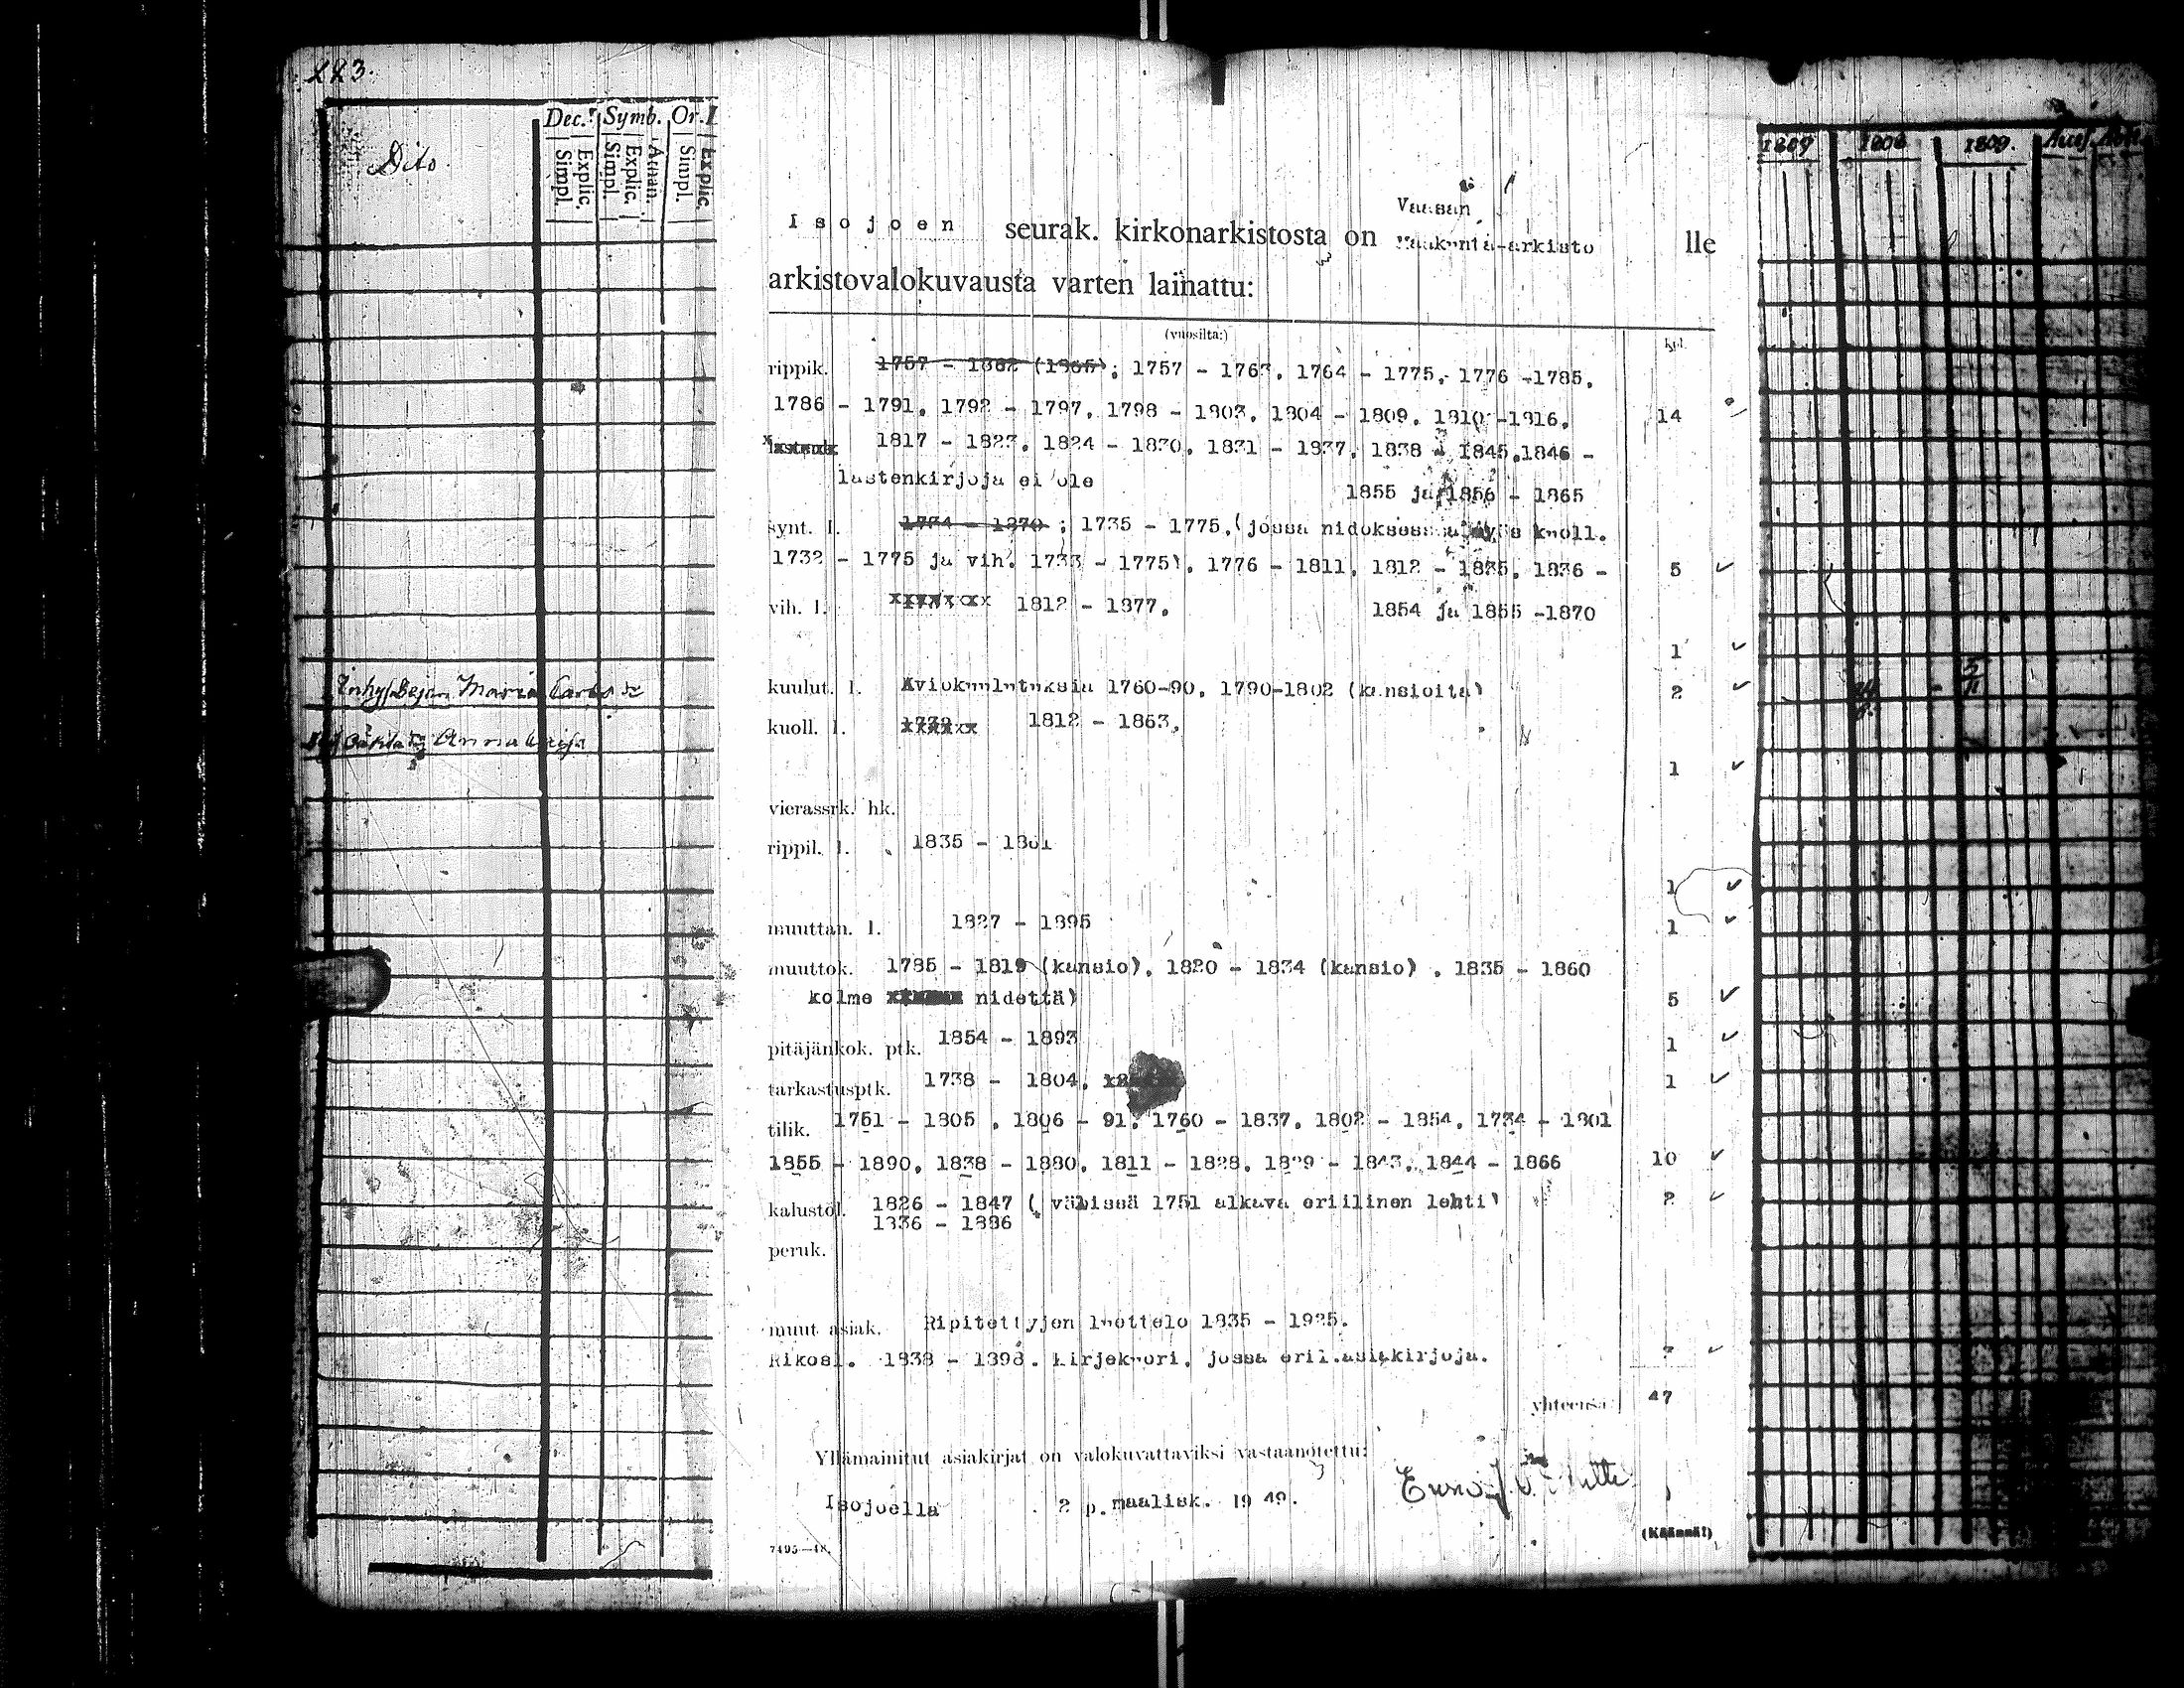 223.
Dito
Dec. Symb. Or.
Explic. Simpl. Athan. Explic. Simpl. Explic. Simpl.
Inhys Maria Carls
Anna
I s o j o e n seurak. kirkonarkistosta on Vaasan Maakunta-arkisto lle
arkistovalokuvausta varten lainattu:
(vuosilta:) kpl.
rippik. 1757 - 1862 (1865); 1757 - 1763, 1764 - 1775, 1776 -1785,
1786 - 1791, 1792 - 1797, 1798 - 1803, 1804 - 1809, 1810 -1816, 14
lastenk 1817 - 1823, 1824 - 1830, 1831 - 1837, 1838 - 1845,1846 -
lastenkirjoja ei ole 1855 ja 1856 - 1865
synt. l. ; 1735 - 1775,(jossa nidoksessa myös kuoll.
1732 - 1775 ja vih. 1733 - 1775), 1776 - 1811, 1812 - 1835, 1836 - 5
vih. l. 1812 - 1877. 1854 ja 1855 -1870
1
kuulut. l. Aviokuulutuksia 1760-90, 1790-1802 (kansioita) 2
kuoll. l. 1812 - 1863,
1
vierassrk. hk.
rippil. l. 1835 - 1861
1
muuttan. l. 1827 - 1895 1
muuttok. 1785 - 1819 (kansio), 1820 - 1834 (kansio) , 1835 - 1860
kolme nidettä) 5
pitäjänkok. ptk. 1854 - 1893 1
tarkastusptk. 1738 - 1804, 1
tilik. 1751 - 1805 , 1806 - 91, 1760 - 1837, 1802 - 1854, 1734 - 1801
1855 - 1890, 1838 - 1880, 1811 - 1828, 1829 - 1843, 1844 - 1866 10
kalustol. 1826 - 1847 ( välissä 1751 alkava eriilinen lehti) 2
1836 - 1886
peruk.
muut asiak. Ripitettyjen luettelo 1835 - 1925.
Rikosl. 1838 - 1898. Kirjekuori, jossa eril.asiakirjoja.
yhteensä 47
Yllämainitut asiakirjat on valokuvattaviksi vastaanotettu:
Isojoella . 2 p. maalisk. 19 49.
(Käännä!)
7495—48.
1808 1809.